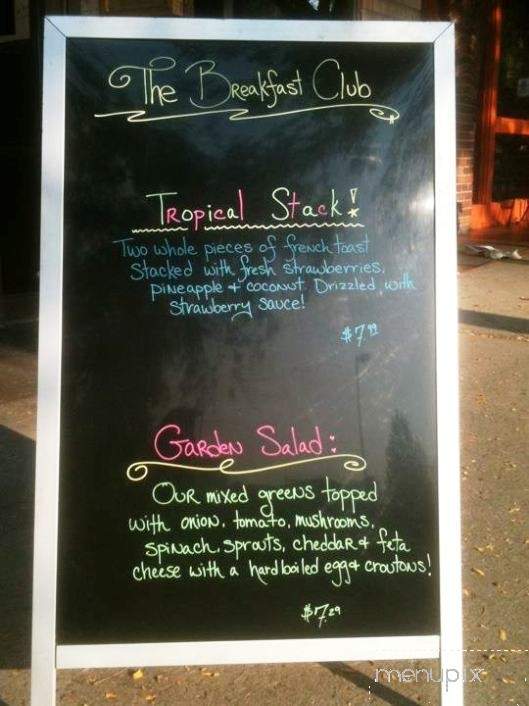 The Breakfast Club
Tropical Stack!
Two whole pieces of french toast
Stacked with fresh strawberries,
pineapple & coconut. Drizzled with
strawberry sauce!
$7.99
Garden Salad:
Our mixed greens topped
with onion, tomato, mushrooms,
spinach, sprouts, cheddar & feta
cheese with a hard boiled egg & croutons!
$7.29
menupix